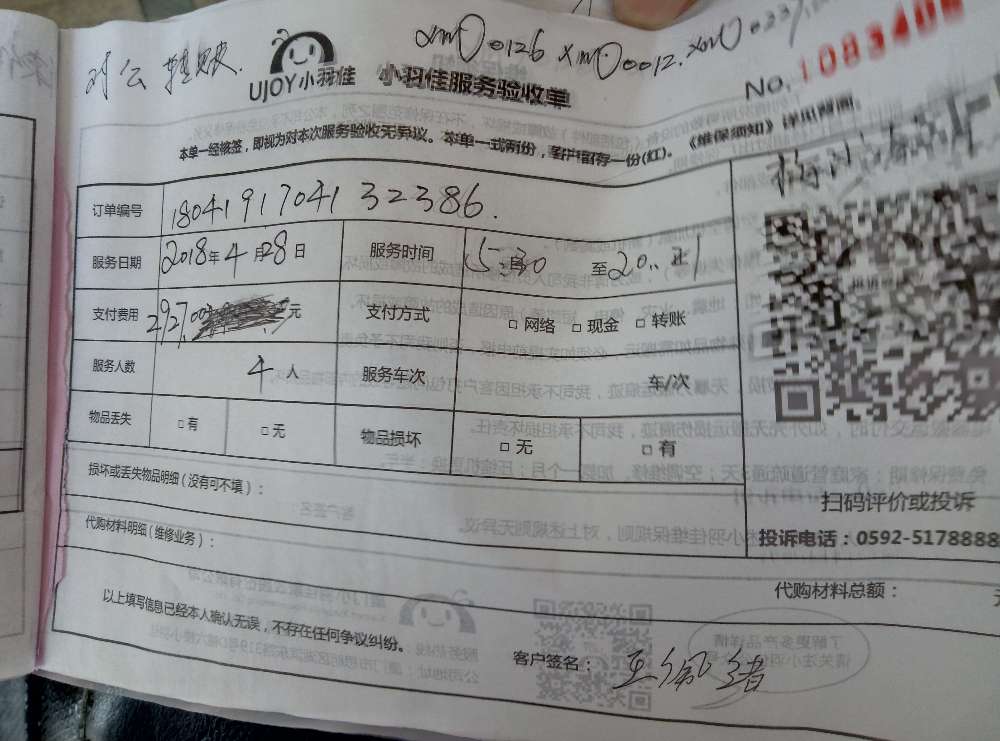 对公转账
xm00126 xm00012. xm00237
UJOY小羽佳 小羽佳服务验收单
No. 108340
本单一经核签，即视为对本次服务验收无异议。本单一式两份，客户留存一份(红)。《维保须知》详见背面。
订单编号 1804191704132386.
服务日期 2018年4月28日 服务时间 15:30 至20:
支付费用 2927.00 元 支付方式 □ 网络 □ 现金 □ 转账
服务人数 4 人 服务车次 车/次
物品丢失 □ 有 □ 无 物品损坏 □ 无 □ 有
损坏或丢失物品明细（没有可不填）：
扫码评价或投诉
代购材料明细（维修业务）：
投诉电话：0592-5178888
代购材料总额：
以上填写信息已经本人确认无误，不存在任何争议纠纷。
客户签名：